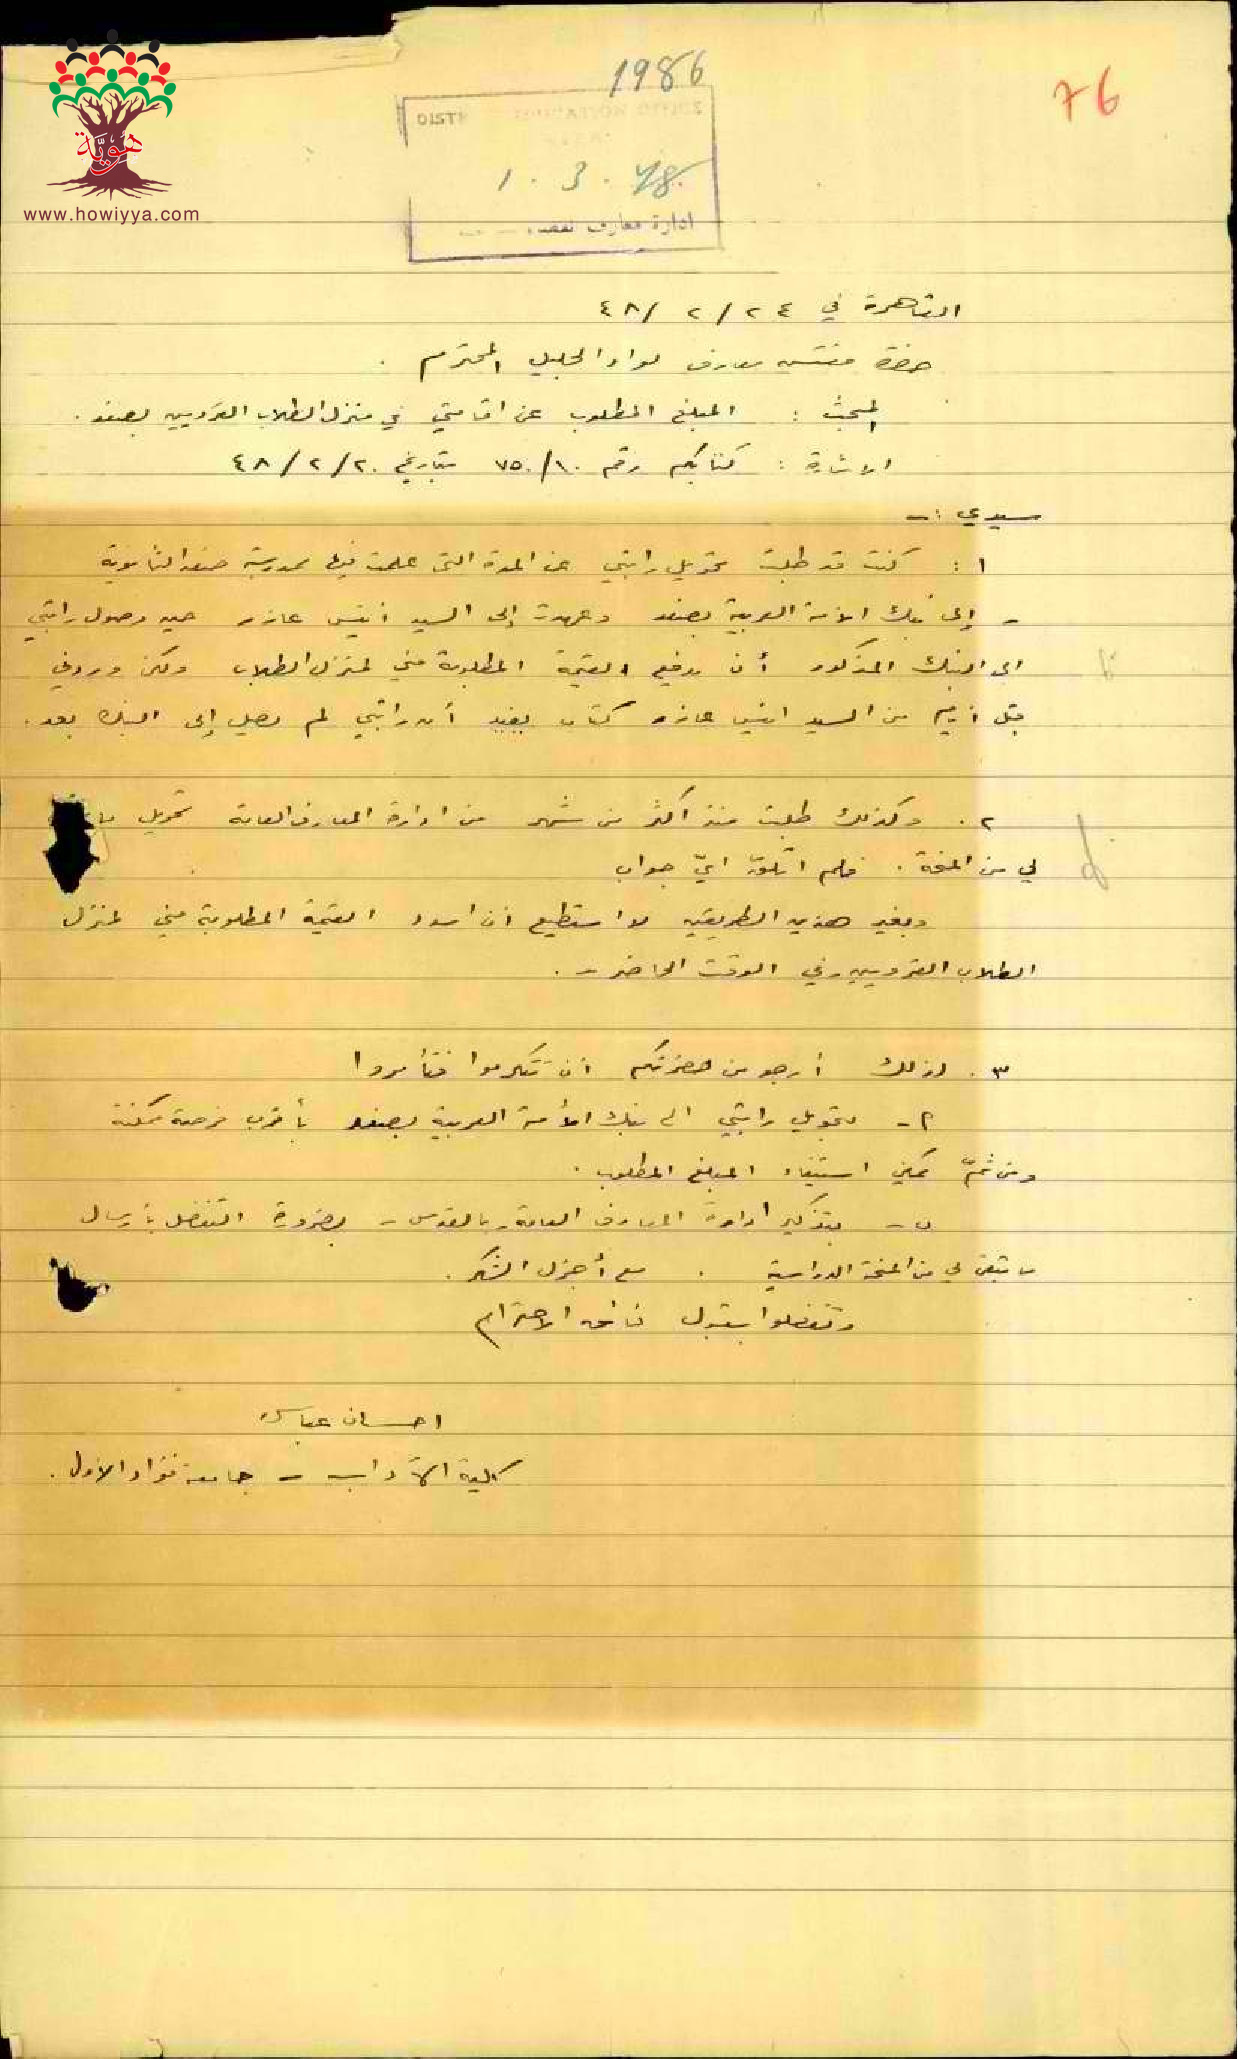 1986
76
هوية
www.howiyya.com
DISTR EDUCATION OFFICE
1.3.48.
ادارة معارف
القاهرة في ٢٤ / ٢ / ٤٨
حضرة مفتش معارف لواء الجليل المحترم .
المبحث : المبلغ المطلوب عن اقامتي في منزل الطلاب القرويين بصفد .
الاشارة : كتابكم رقم ٧٥٠/١٠ بتاريخ ٤٨/٢/٢٠
سيدي :-
١ : كنت قد طلبت تحويل راتبي عن المدة التي علمت فيها بمدرسة صفد الثانوية
- إلى بنك الامة العربية بصفد وعهدت إلى السيد انيس عازر حين وصول راتبي
الى البنك المذكور أن يدفع القيمة المطلوبة مني لمنزل الطلاب ولكن وردني
قبل ايام من السيد انيس عازر كتاب يفيد أن راتبي لم يصل إلى البنك بعد .
٢ . وكذلك طلبت منذ اكثر من شهر من ادارة المعارف العامة تحويل ما
لي من المنحة . فلم اتلقّ ايّ جواب
وبغير هذين الطريقين لا استطيع ان اسدد القيمة المطلوبة مني لمنزل
الطلاب القرويين في الوقت الحاضر - .
٣ . لذلك أرجو من حضرتكم ان تتكرموا فتأمروا
٢ - بتحويل راتبي الى بنك الأمة العربية بصفد بأقرب فرصة ممكنة
ومن ثمّ يمكن استيفاء المبلغ المطلوب .
ب - بتذكير ادارة المعارف العامة بالقدس - بضرورة التفضل بأرسال
ما تبقى لي من المنحة الدراسية . مع أجزل الشكر .
وتفضلوا بقبول فائق الاحترام
احسان عباس
كلية الآداب - جامعة فؤاد الاول .